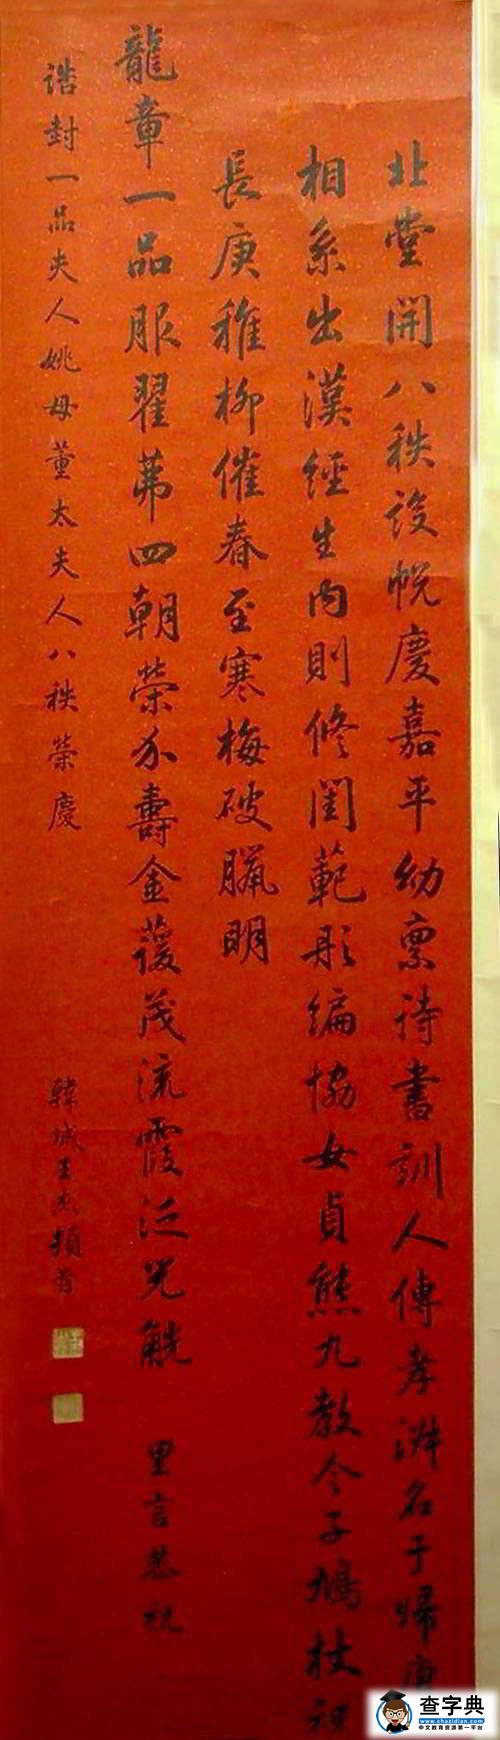 北堂開八秩設帨慶嘉平幼禀詩書訓人傳孝淑名于歸唐
相系出漢經生内則修閨範彤編協女貞熊丸教令子鳩杖祝
長庚稚柳催春至寒梅破臘明
龍章一品服翟茀四朝榮介壽金萲茂流霞泛兕觥 里言恭祝
誥封一品夫人姚母董太夫人八秩榮慶
韓城王杰頓首
查字典
www.chazidian.com
中文教育资源第一平台